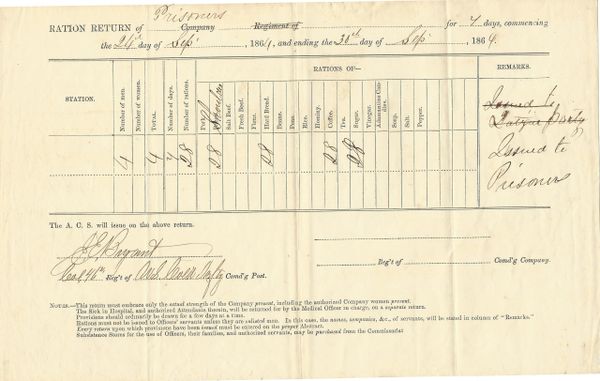 Prisoners
RATION RETURN of Company Regiment of for 7 days, commencing
the 24th day of Sep 1864, and ending the 30th day of Sep, 1864.
STATION.
RATIONS OF—
REMARKS.
Number of men.
Number of women.
Total.
Number of days.
Number of rations.
Pork
Shoulder
Salt Beef.
Fresh Beef.
Flour.
Hard Bread.
Beans.
Peas.
Rice.
Hominy.
Coffee.
Tea.
Sugar.
Vinegar.
Adamantine Candles.
Soap.
Salt.
Pepper.
4 4 7 28 28 28 28 28
Issued to
Issued to
Prisoners
The A. C. S. will issue on the above return.
J E Bryant
46th Reg't of Cold Infty Comd'g Post.
Reg't of Comd'g Company.
NOTES.—This return must embrace only the actual strength of the Company present, including the authorized Company women present.
The Sick in Hospital, and authorized Attendants therein, will be returned for by the Medical Officer in charge, on a separate return.
Provisions should ordinarily be drawn for a few days at a time.
Rations must not be issued to Officers' servants unless they are enlisted men. In this case, the names, companies, &c., of servants, will be stated in column of "Remarks."
Every return upon which provisions have been issued must be entered on the proper Abstract.
Subsistence Stores for the use of Officers, their families, and authorized servants, may be purchased from the Commissariat